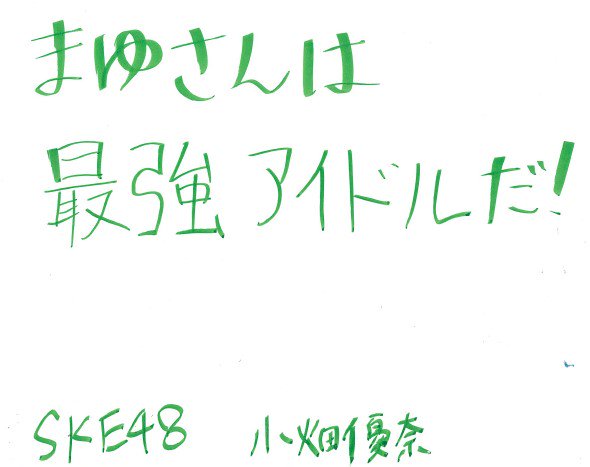 まゆさんは
最強アイドルだ!
SKE48 小畑優奈